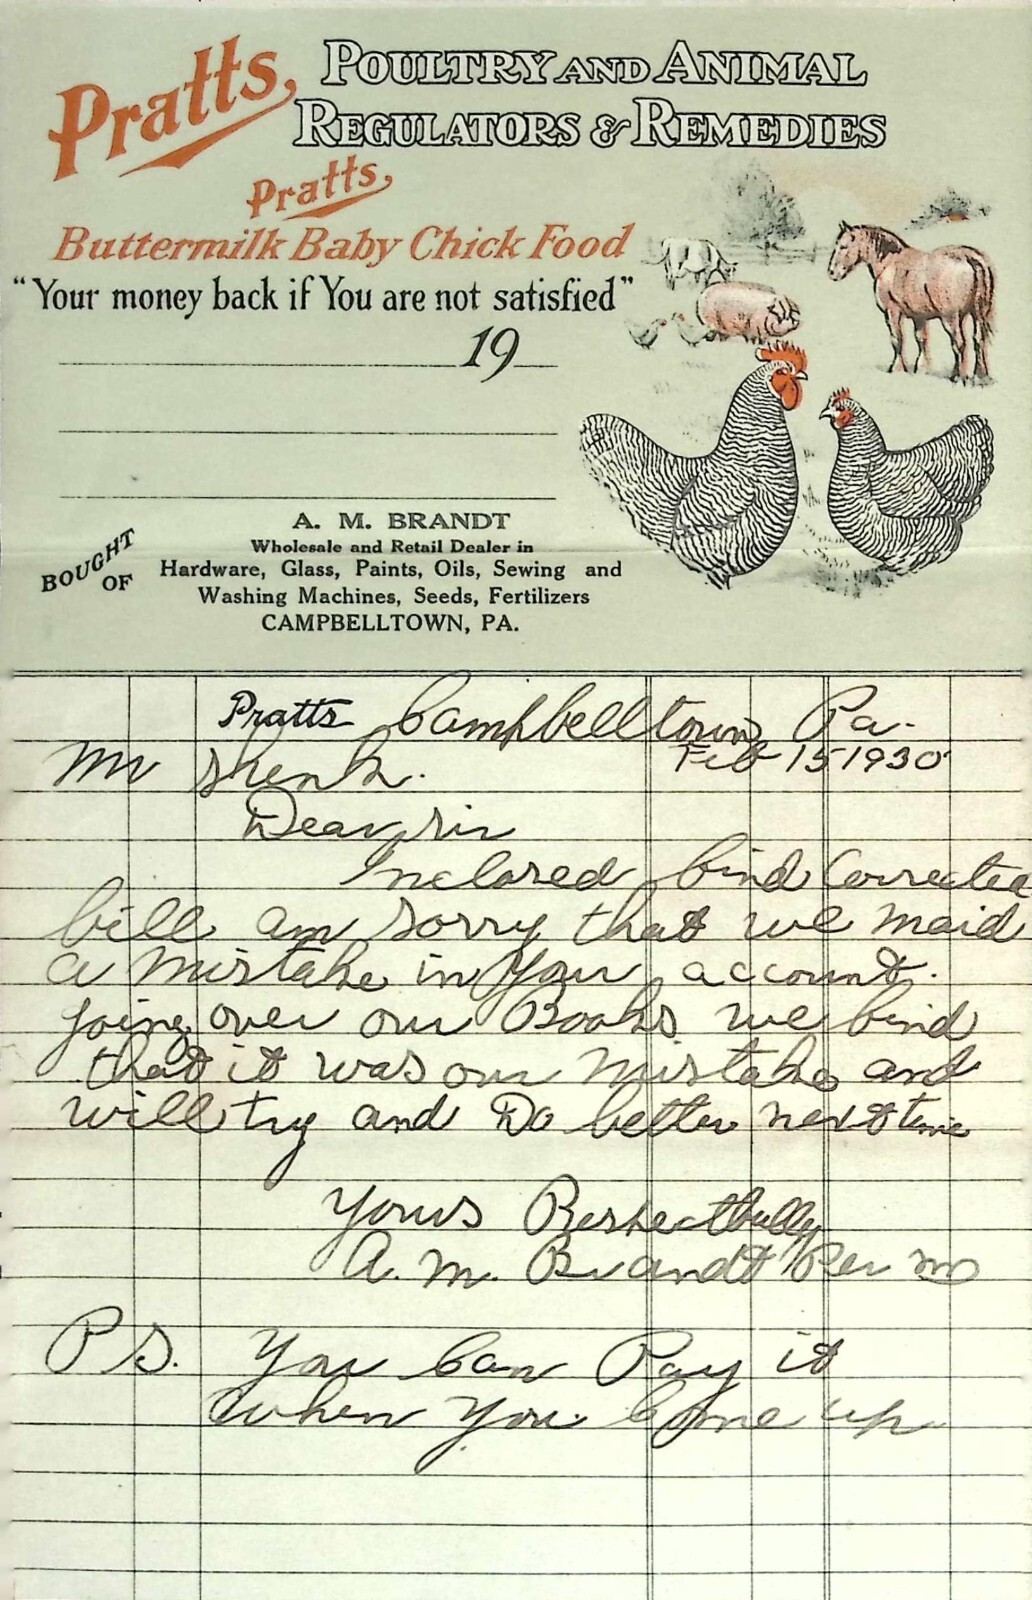 Pratts, POULTRY AND ANIMAL
REGULATORS & REMEDIES
Pratts,
Buttermilk Baby Chick Food
"Your money back if You are not satisfied"
19
BOUGHT OF
A. M. BRANDT
Wholesale and Retail Dealer in
Hardware, Glass, Paints, Oils, Sewing and
Washing Machines, Seeds, Fertilizers
CAMPBELLTOWN, PA.
Pratts Campbelltown Pa.
Mr Shenk. Feb 15 1930
Dear sir
Inclosed find Corrected
bill am sorry that we maid
a mistake in your account.
going over our Books we find
that it was our mistake and
will try and Do better next time
Yours Respectfully
A. M. Brandt Per M
P S. You Can Pay it
When You Come up